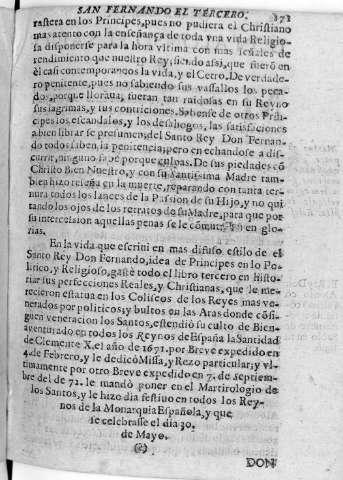 SAN FERNANDO EL TERCERO. 371
rastera en los Principes, pues no pudiera el Christiano
mas atento con la enseñança de toda vna vida Religio-
sa disponerse para la hora vltima con mas señales de
rendimiento que nuestro Rey, siendo assi, que fuerõ en
èl casi contemporaneos la vida, y el Cetro. De verdade-
ro penitente, pues no sabiendo sus vassallos los peca-
dos, porque lloraua, fueran tan ruidosas en su Reyno
sus lagrimas, y tus contriciones. Sabense de otros Prin-
cipes los escandalos, y los desahogos, las satisfaciones
a bien librar se presumen; del Santo Rey Don Fernan-
do todos saben la penitencia; pero en echandose a dis-
currir, ninguno sabe porque culpas. De sus piedades cõ
Christo Bien Nuestro, y con su Santissima Madre tam-
bien hizo reseña en la muerte, reparando con tanta ter-
nura todos los lances de la Passion de su Hijo, y no qui-
tando los ojos de los retratos de su Madre, para que por
su intercession aquellas penas se le comutassen en glo-
rias.
En la vida que escriui en mas difuso estilo de el
Santo Rey Don Fernando, idea de Principes en lo Po-
litico, y Religioso, gastè todo el libro tercero en Histo-
riar sus perfecciones Reales, y Christianas, que le me-
recieron estatua en los Coliseos de los Reyes mas ve-
nerados por politicos; y bultos en las Aras donde cõsi-
guen veneracion los Santos, estendiò su culto de Bien-
auenturado en todos los Reynos de España la Santidad
de Clemente X. el año de 1671. por Breve expedido en
4. de Febrero, y le dedicò Missa, y Rezo particular; y vl-
timamente por otro Breve expedido en 7. de Septiem-
bre del de 72. le mandò poner en el Martirologio de
los Santos, y le hizo dia festiuo en todos los Rey-
nos de la Monarquia Española, y que
se celebrasse el dia 30.
de Mayo.
DON